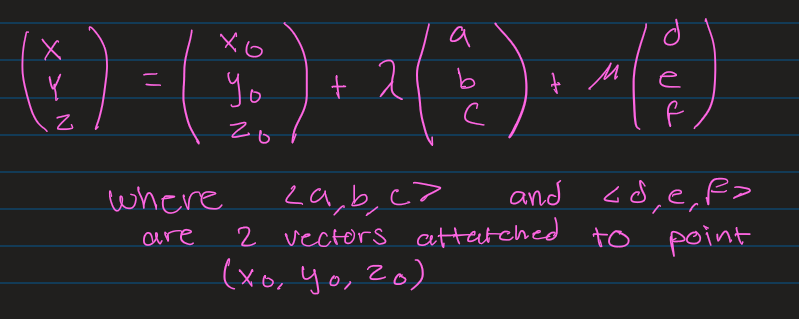 (x y z) = (x₀ y₀ z₀) + λ(a b c) + μ(d e f)
where <a,b,c> and <d,e,f>
are 2 vectors attatched to point
(x₀, y₀, z₀)